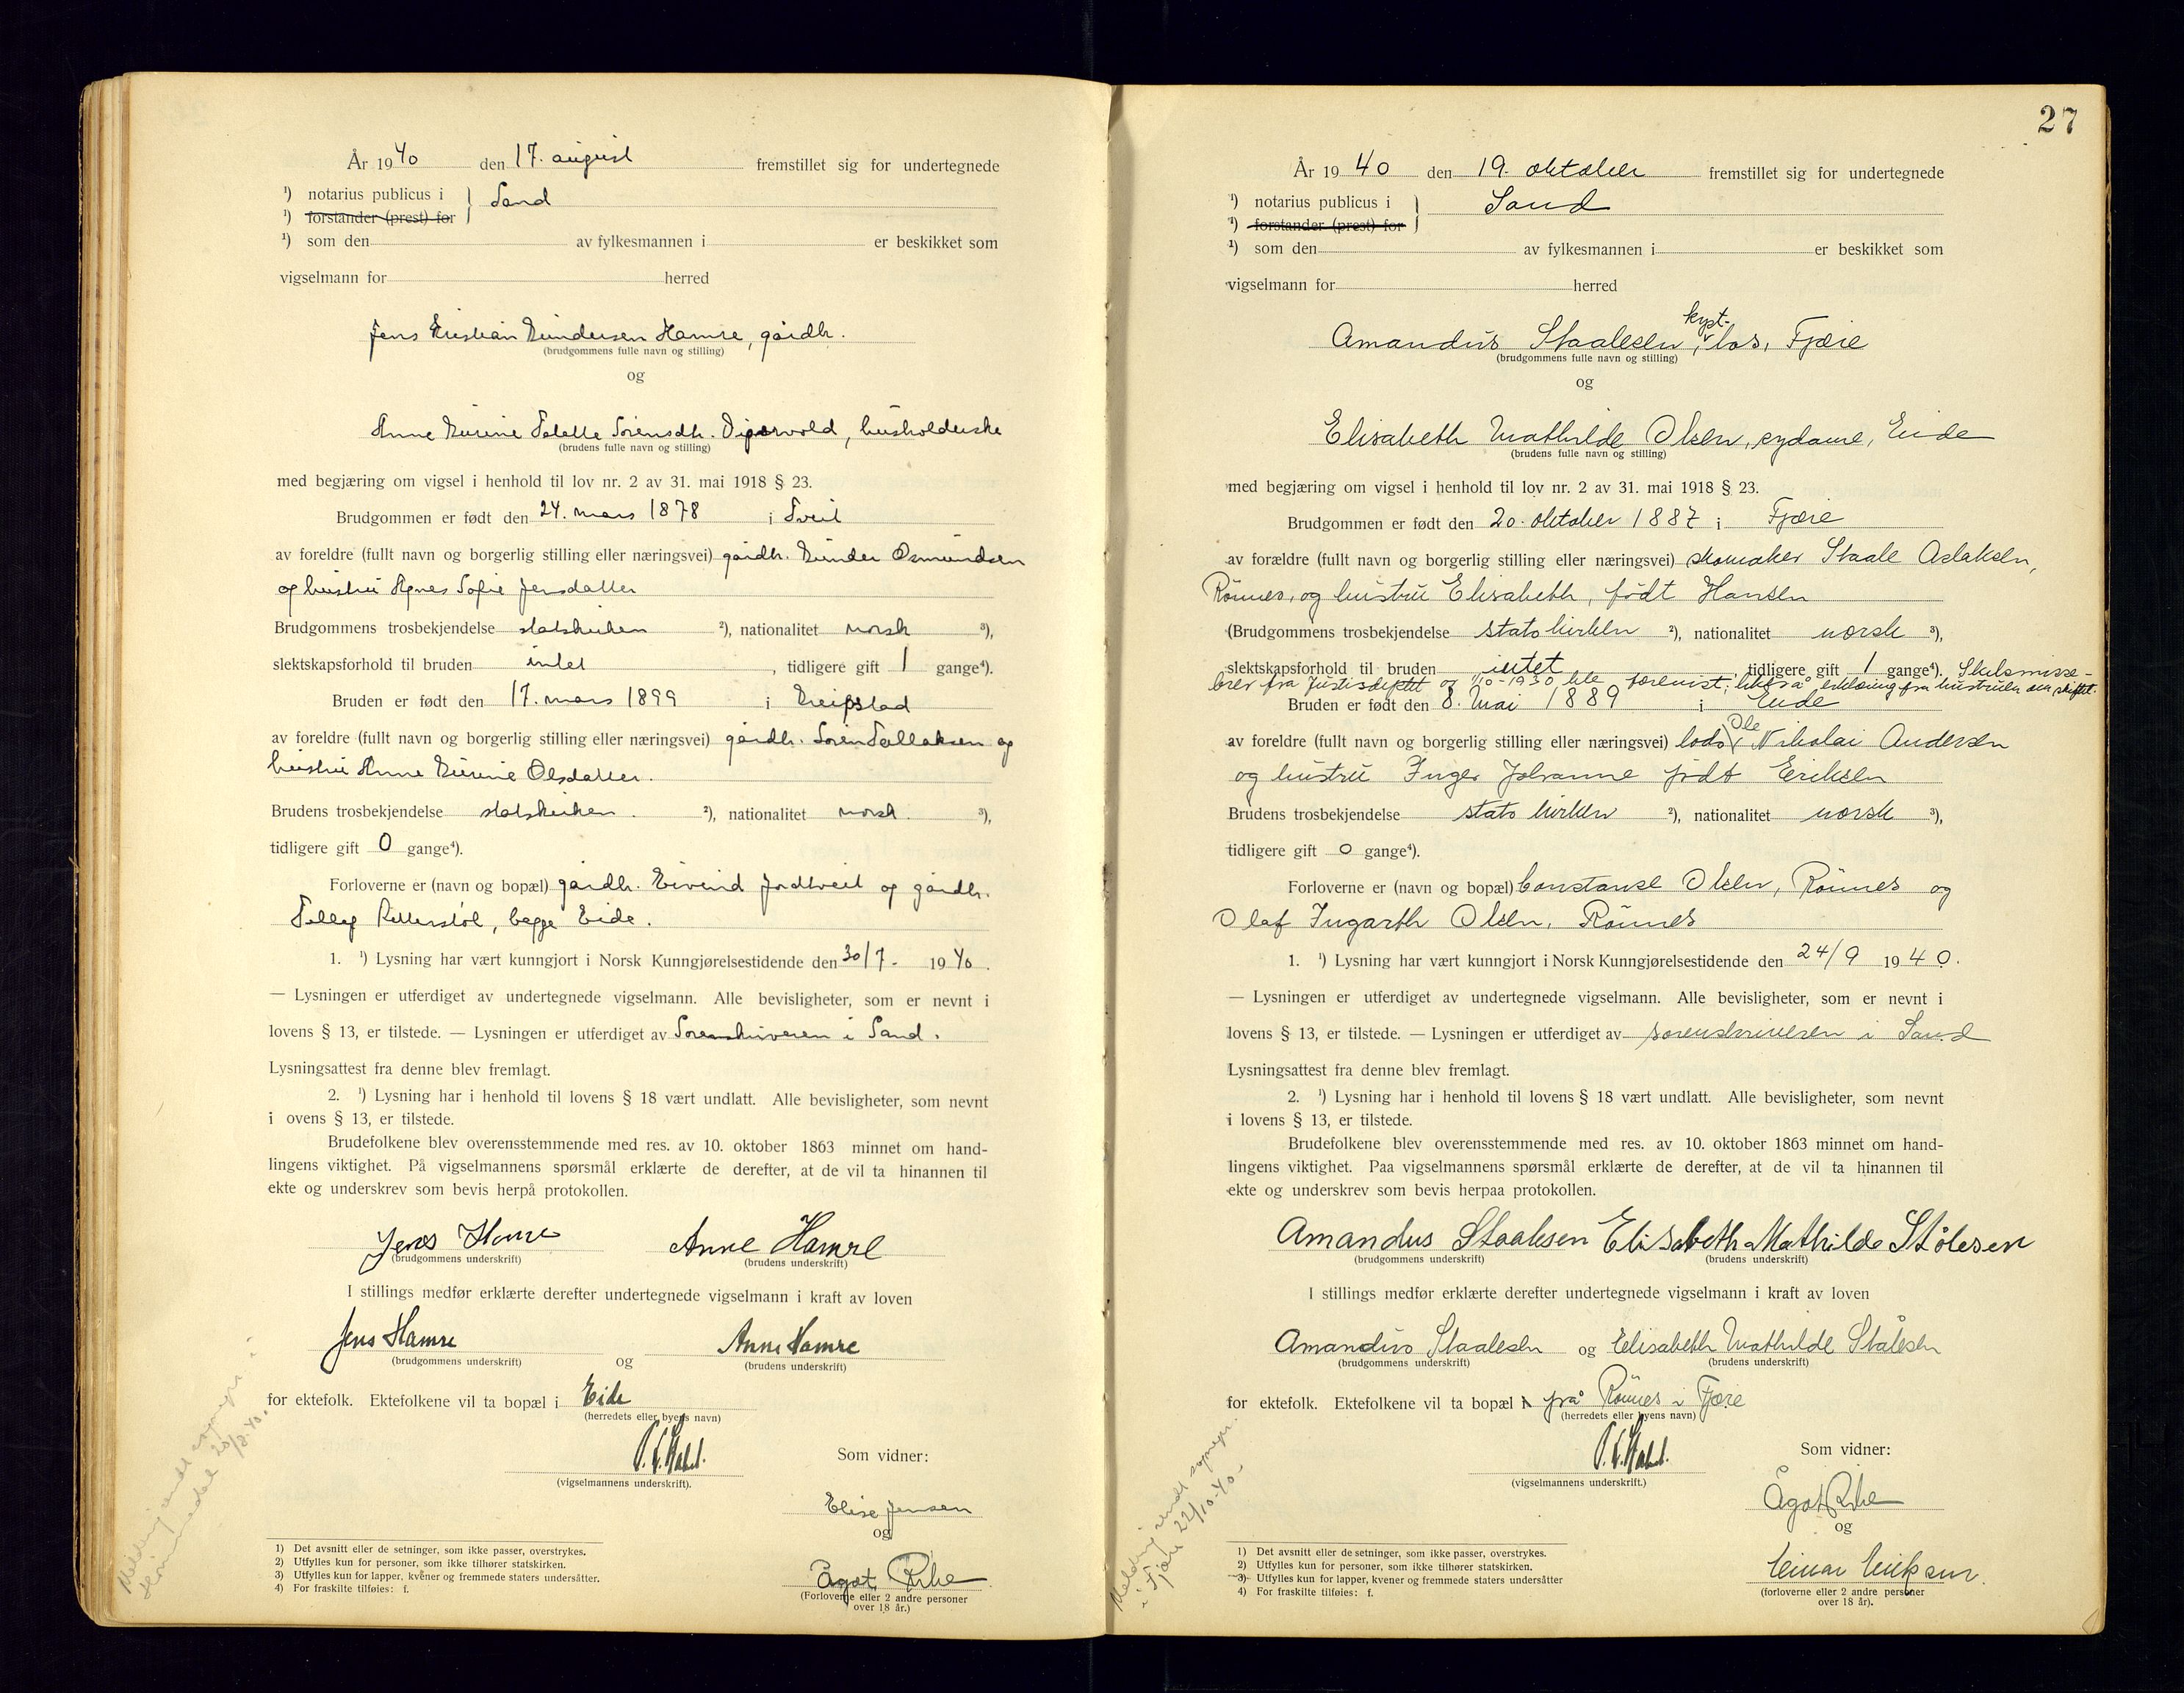 År 1940 den 17. august fremstillet sig for undertegnede
¹) notarius publicus i } Sand
¹) forstander (prest) for
¹) som den av fylkesmannen i er beskikket som
vigselmann for herred
Jens Kristian Gundersen Hamre, gårdbr.
(brudgommens fulle navn og stilling)
og
Anne Gurine Talette Sørensdtr. Digervold, husholderske
(brudens fulle navn og stilling)
med begjæring om vigsel i henhold til lov nr. 2 av 31. mai 1918 § 23.
Brudgommen er født den 24. mars 1878 i Tveit
av foreldre (fullt navn og borgerlig stilling eller næringsvei) gårdbr. Gunder Osmundsen
og hustru Agnes Sofie Jensdatter
Brudgommens trosbekjendelse statskirken ²), nationalitet norsk ³),
slektskapsforhold til bruden intet, tidligere gift 1 gange⁴).
Bruden er født den 17. mars 1899 i Greipstad
av foreldre (fullt navn og borgerlig stilling eller næringsvei) gårdbr. Søren Tallaksen og
hustru Anne Gurine Olsdatter.
Brudens trosbekjendelse statskirken. ²), nationalitet norsk. ³),
tidligere gift 0 gange⁴).
Forloverne er (navn og bopæl) gårdbr. Eivind Jordtveit og gårdbr.
Tellef Retterstøl, begge Eide.
1. ¹) Lysning har vært kunngjort i Norsk Kunngjørelsestidende den 30/7- 1940.
— Lysningen er utferdiget av undertegnede vigselmann. Alle bevisligheter, som er nevnt i
lovens § 13, er tilstede. — Lysningen er utferdiget av Sorenskriveren i Sand.
Lysningsattest fra denne blev fremlagt.
2. ¹) Lysning har i henhold til lovens § 18 vært undlatt. Alle bevisligheter, som nevnt
i ovens § 13, er tilstede.
Brudefolkene blev overensstemmende med res. av 10. oktober 1863 minnet om hand-
lingens viktighet. På vigselmannens spørsmål erklærte de derefter, at de vil ta hinannen til
ekte og underskrev som bevis herpå protokollen.
Jens Hamre Anne Hamre
(brudgommens underskrift) (brudens underskrift)
I stillings medfør erklærte derefter undertegnede vigselmann i kraft av loven
Jens Hamre og Anne Hamre
(brudgommens underskrift) (brudens underskrift)
for ektefolk. Ektefolkene vil ta bopæl i Eide
(herredets eller byens navn)
(vigselmannens underskrift).
Som vidner:
Elise Jensen
og
Ågot
(Forloverne eller 2 andre personer
over 18 år.)
Melding sendt sognepr. i
20/8-40.
1) Det avsnitt eller de setninger, som ikke passer, overstrykes.
2) Utfylles kun for personer, som ikke tilhører statskirken.
3) Utfylles kun for lapper, kvener og fremmede staters undersåtter.
4) For fraskilte tilføies: f.
27
År 1940 den 19. oktober fremstillet sig for undertegnede
¹) notarius publicus i } Sand
¹) forstander (prest) for
¹) som den av fylkesmannen i er beskikket som
vigselmann for herred
Amandus Staalesen, kyst-los, Fjære
(brudgommens fulle navn og stilling)
og
Elisabeth Mathilde Olsen, sydame, Eide
(brudens fulle navn og stilling)
med begjæring om vigsel i henhold til lov nr. 2 av 31. mai 1918 § 23.
Brudgommen er født den 20. oktober 1887 i Fjære
av forældre (fullt navn og borgerlig stilling eller næringsvei) skomaker Staale Aslaksen,
Rønnes, og hustru Elisabeth, født Hansen
(Brudgommens trosbekjendelse statskirken ²), nationalitet norsk ³),
slektskapsforhold til bruden intet, tidligere gift 1 gange⁴). Skilsmisse-
brev fra Justisdeptet av 1/10-1930 ble forevist; likeså erklæring fra hustruen om skiftet.
Bruden er født den 8. Mai 1889 i Eide
av foreldre (fullt navn og borgerlig stilling eller næringsvei) lods Ole Nikolai Andersen
og hustru Inger Johanne født Eriksen
Brudens trosbekjendelse statskirken ²), nationalitet norsk ³),
tidligere gift 0 gange⁴).
Forloverne er (navn og bopæl) Constanse Olsen, Rønnes og
Olaf Ingarth Olsen, Rønnes
1. ¹) Lysning har vært kunngjort i Norsk Kunngjørelsestidende den 24/9 1940.
— Lysningen er utferdiget av undertegnede vigselmann. Alle bevisligheter, som er nevnt i
lovens § 13, er tilstede. — Lysningen er utferdiget av sorenskriveren i Sand
Lysningsattest fra denne blev fremlagt.
2. ¹) Lysning har i henhold til lovens § 18 vært undlatt. Alle bevisligheter, som nevnt
i lovens § 13, er tilstede.
Brudefolkene blev overensstemmende med res. av 10. oktober 1863 minnet om hand-
lingens viktighet. Paa vigselmannens spørsmål erklærte de derefter, at de vil ta hinannen til
ekte og underskrev som bevis herpaa protokollen.
Amandus Staalesen Elisabeth Mathilde Stålesen
(brudgommens underskrift) (brudens underskrift)
I stillings medfør erklærte derefter undertegnede vigselmann i kraft av loven
Amandus Staalesen og Elisabeth Mathilde Stålesen
(brudgommens underskrift) (brudens underskrift)
for ektefolk. Ektefolkene vil ta bopæl i på Rønnes i Fjære
(herredets eller byens navn)
(vigselmannens underskrift.)
Som vidner:
Ågot
og
Einar Eriksen.
(forloverne eller 2 andre personer
over 18 år).
Melding sendt sognepr.
i Fjære 22/10-40-
1) Det avsnitt eller de setninger, som ikke passer, overstrykes.
2) Utfylles kun for personer, som ikke tilhører statskirken.
3) Utfylles kun for lapper, kvener og fremmede staters undersåtter
4) For fraskilte tilføies: f.